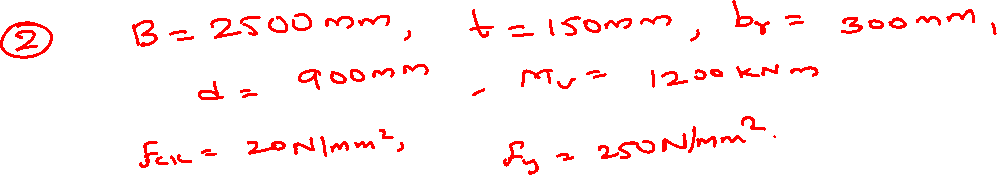 ② B = 2500 mm, t = 150mm, br = 300mm,
d = 900mm , Mu = 1200 KNm
fck = 20N/mm², fy = 250N/mm².